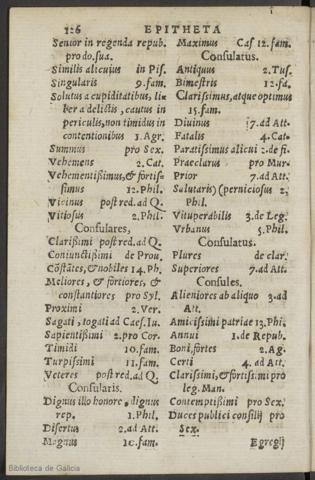 126 EPITHETA
Senior in regenda repub.
pro do. sua.
Similis alicuius in Pis.
Singularis 9. fam.
Solutus a cupiditatibus, li-
ber a delictis, cautus in
periculis, non timidus in
contentionibus 1. Agr.
Summus pro Sex.
Vehemens 2. Cat.
Vehementißimus, & fortis-
simus 12. Phil.
Vicinus post red. ad Q.
Vitiosus 2. Phil.
Consulares,
Clarißimi post red. ad Q.
Coniunctißimi de Prou.
Cõstãtes, & nobiles 14. Ph.
Meliores, & fortiores, &
constantiores pro Syl.
Proximi 2. Ver.
Sagati, togati ad Caes. Iu.
Sapientißimi 2. pro Cor.
Timidi 10. fam.
Turpissimi 11. fam.
Veteres post red. ad Q.
Consularis.
Dignus illo honore, dignus
rep. 1. Phil.
Disertus 2. ad Att.
Magnus 10. fam.
Maximus Cas 12. fam.
Consulatus.
Antiquus 2. Tus.
Bimestris 12. fa.
Clarissimus, atque optimus
15. fam.
Diuinus 7. ad Att.
Fatalis 4. Cat.
Paratissimus alicui 2. de fi.
Praeclarus pro Mur.
Prior 7. ad Att.
Salutaris) (perniciosus 2.
Phil.
Vituperabilis 3. de Leg.
Vrbanus 5. Phil.
Consulatus.
Plures de clar.
Superiores 7. ad Att.
Consules.
Alieniores ab aliquo 3. ad
Att.
Amicissimi patriae 13. Phi.
Annui 1. de Repub.
Boni, fortes 2. Ag.
Certi 4. ad Att.
Clarissimi, & fortissimi pro
leg. Man.
Contemptißimi pro Sex.
Duces publici consilij pro
Sex.
Egregij
Biblioteca de Galicia